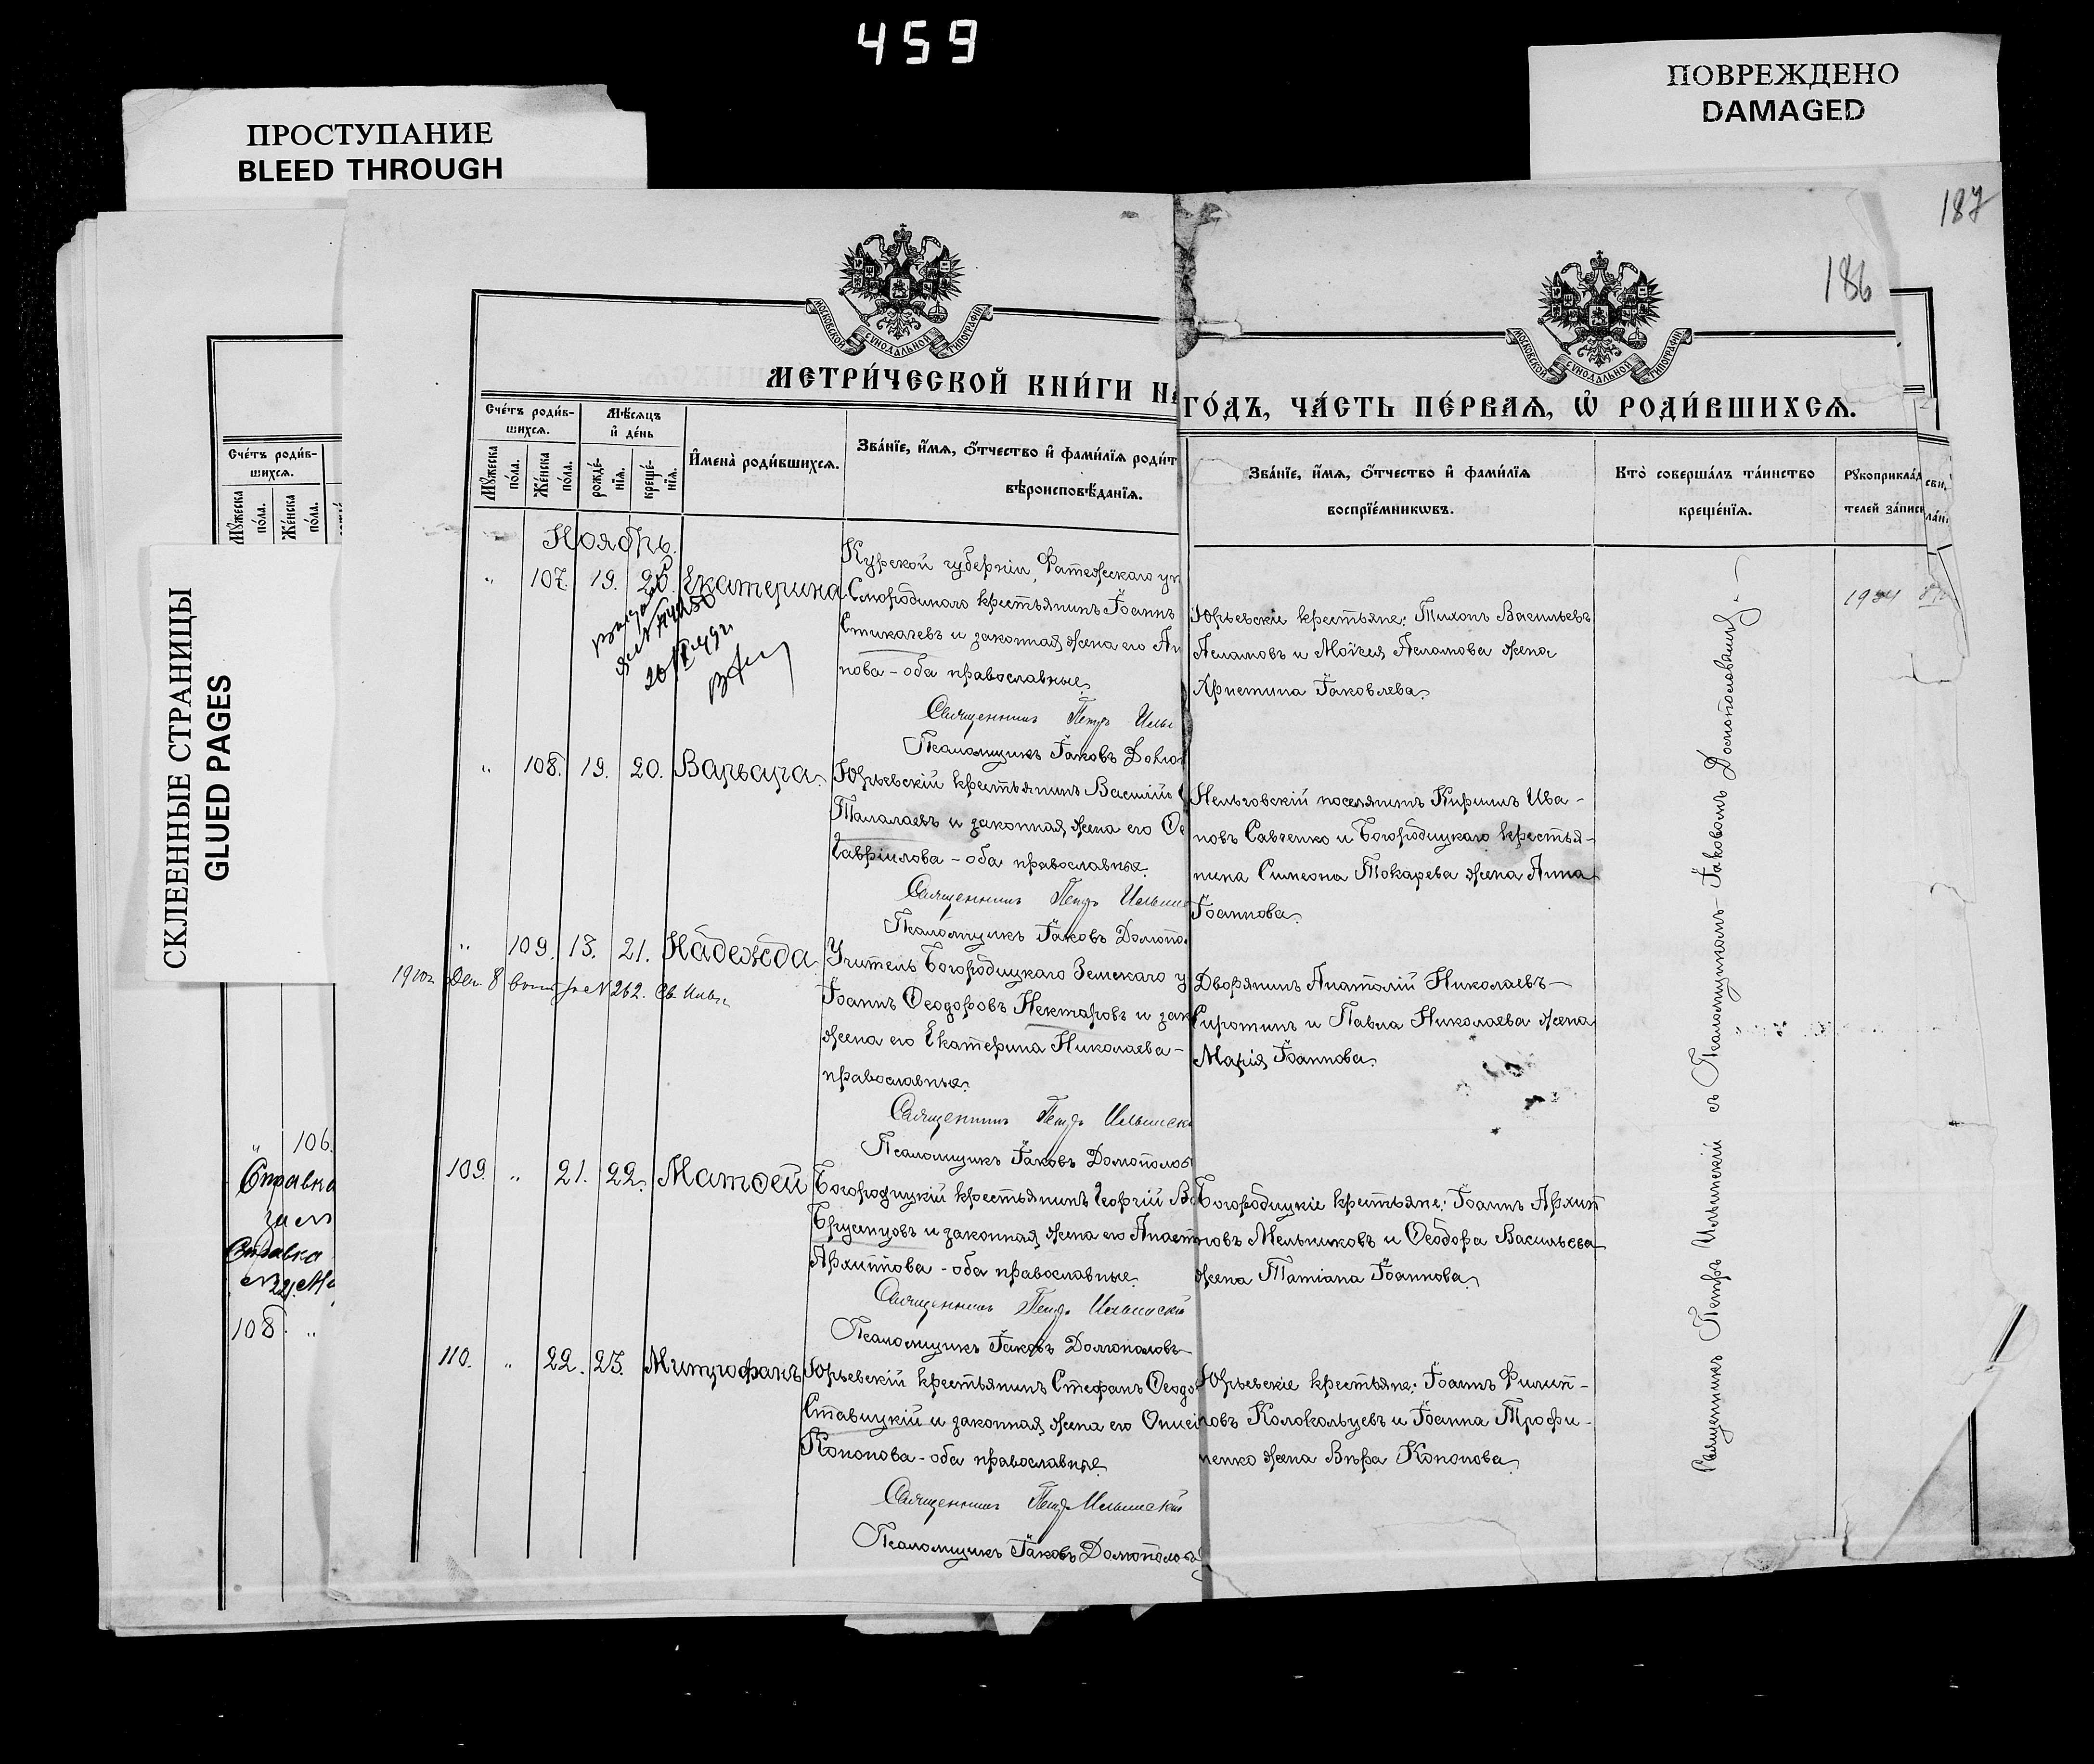 459
ПРОСТУПАНИЕ
BLEED THROUGH
ПОВРЕЖДЕНО
DAMAGED
187
186
СКЛЕЕННЫЕ СТРАНИЦЫ
GLUED PAGES
МОСКОВСКОЙ СѴНОДАЛЬНОЙ ТИПОГРАФІИ
МОСКОВСКОЙ СѴНОДАЛЬНОЙ ТИПОГРАФІИ
МЕТРИ́ЧЕСКОЙ КНИ́ГИ НА
ГО́ДЪ, ЧА́СТЬ ПЕ́РВАѦ, Ѡ҆ РОДИ́ВШИХСѦ.
Сче́тъ роди́в-
шихсѧ.
Мꙋ́жеска по́ла.
Же́нска по́ла.
Сче́тъ роди́в-
шихсѧ.
Мѣ́сѧцъ
и҆ де́нь
Мꙋ́жеска по́ла.
Же́нска по́ла.
рожде́-нїѧ.
креще́-нїѧ.
И҆мена̀ роди́вшихсѧ.
Зва́нїе, и҆́мѧ, ѻ҆́тчество и҆ фами́лїѧ роди́т
вѣроисповѣ́данїѧ.
Зва́нїе, и҆́мѧ, ѻ҆́тчество и҆ фами́лїѧ
воспрїе́мникѡвъ.
Кто̀ соверша́лъ та́инство
креще́нїѧ.
Рꙋкоприкла́д
телей за́писи
Ноябрь.
" 107. 19. 20. Екатерина
Курской губерніи, Фатежскаго уѣ
Смородинаго крестьянинъ Іоаннъ
Стикачевъ и законная жена его Ан
нова - оба православные.
Священникъ Петръ Ильи
Псаломщикъ Іаковъ Домо
Юрьевскіе крестьяне: Тихонъ Васильевъ
Асламовъ и Моѵсея Асламова жена
Христина Іаковлева.
" 108. 19. 20. Варвара.
Юрьевскій крестьянинъ Василій
Талалаевъ и законная жена его Ѳе
Гавріилова - оба православные.
Священникъ Петръ Ильинс
Псаломщикъ Іаковъ Домопо
Нельговскій поселянинъ Кириллъ Ива-
новъ Савченко и Богородицкаго крестья-
нина Симеона Токарева жена Анна
Іоаннова.
" 109. 13. 21. Надежда
Dек. 8 № 262.
Учитель Богородицкаго Земскаго у
Іоаннъ Ѳеодоровъ Нектаровъ и зак
жена его Екатерина Николаева -
православные.
Священникъ Петръ Ильинск
Псаломщикъ Іаковъ Домополов
Дворянинъ Анатолій Николаевъ
Сиротинъ и Павла Николаева жена
Марія Іоаннова.
109. " 21. 22. Матѳей
Богородицкій крестьянинъ Георгій Ва
Брусенцовъ и законная жена его Анаст
Архиппова - оба православные.
Священникъ Петръ Ильинскій
Псаломщикъ Іаковъ Домополовъ
Богородицкіе крестьяне: Іоаннъ Архип
повъ Мельниковъ и Ѳеодора Васильева
жена Татіана Іоаннова.
110. " 22. 23. Митрофанъ
Юрьевскій крестьянинъ Стефанъ Ѳеодо
Ставицкій и законная жена его Ониси
Кононова - оба православные.
Священникъ Петръ Ильинскій
Псаломщикъ Іаковъ Домополовъ
Юрьевскіе крестьяне: Іоаннъ Филип-
повъ Колокольцевъ и Іоанна Трофи-
менко жена Вѣра Кононова.
Священникъ Петръ Ильинскій съ Псаломщикомъ Іаковомъ
" 106.
Справка
Справка
108. "